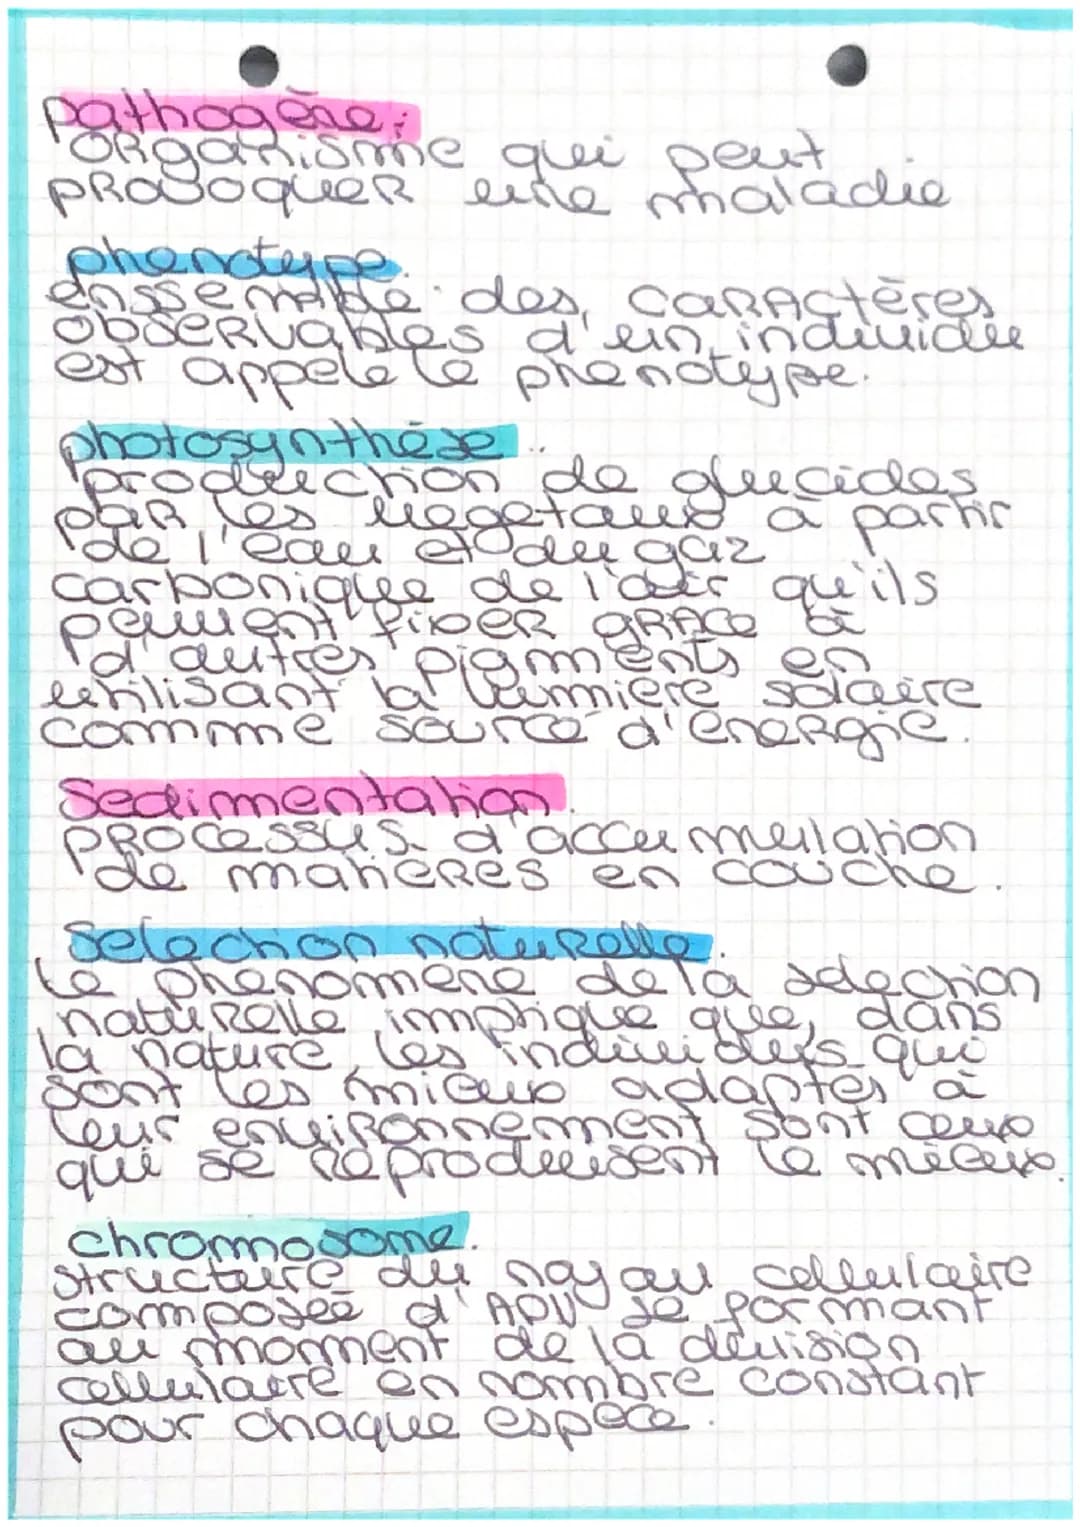 pathogène:
organisme qui peut
provoquer une maladie
phenotype.
enssemble des caractères
observables d'un individu
est appele le phenotype.
photosynthèse :
production de glucides
par les vegetaux à partir
de l'eau et du gaz
carbonique de l'air qu'ils
peuvent fixer grace à
d'autres pigments en
utilisant la lumniere solaire
comme source d'energie.
Sedimentation.
processus d'accumulation
de matieres en couche.
Selection naturelle.
Le phenomene de la selection
naturelle implique que, dans
la nature, les individus qui
sont les mieux adaptes à
leur environnement sont ceux
qui se reproduisent le mieux.
chromosome.
structure du noyau cellulaire
composée d'ADN se formant
au moment de la division
cellulaire en nombre constant
pour chaque espece.